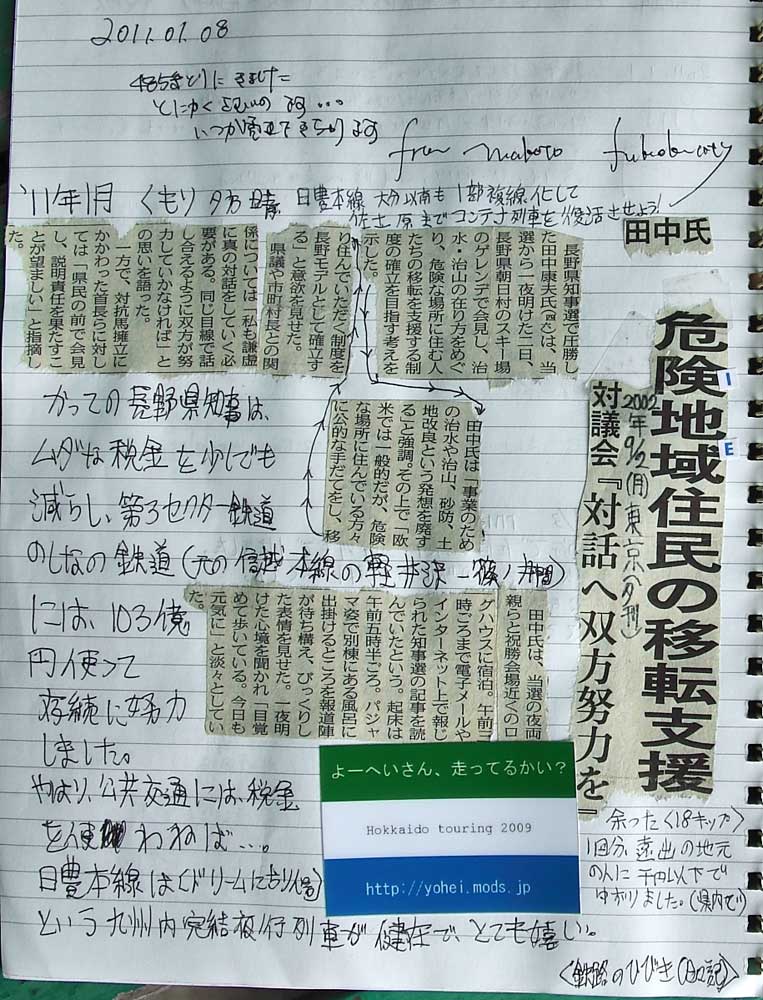 2011.01.08
485きとりに きました
とにかく
いつか
from makoto
'11年1月 くもり 夕方晴 日豊本線 大分以南も 1部複線化して
佐土原まで コンテナ列車を復活させよう!
田中氏
危険地域住民の移転支援
対議会『対話へ双方努力を』
2002年9/2(月)東京(夕刊)
I
E
長野県知事選で圧勝し
た田中康夫氏は、当
選から一夜明けた二日、
長野県朝日村のスキー場
のゲレンデで会見し、治
水・治山の在り方をめぐ
り、危険な場所に住む人
たちの移転を支援する制
度の確立を目指す考えを
示した。
田中氏は「事業のため
の治水や治山、砂防、土
地改良という発想を廃す
ること」と強調。その上で「欧
米では一般的だが、危険
な場所に住んでいる方々
に公的な手だてをし、移
り住んでいただく制度を
長野モデルとして確立す
る」と意欲を見せた。
県議や市町村長との関
係については「私も謙虚
に真の対話をしていく必
要がある。同じ目線で話
し合えるように双方が努
力していかなければ」と
の思いを語った。
一方で、対抗馬擁立に
かかわった首長らに対し
ては「県民の前で会見
し、説明責任を果たすこ
とが望ましい」と指摘し
た。
田中氏は、当選の夜両
親らと祝勝会場近くのロ
グハウスに宿泊。午前二
時ごろまで電子メールや
インターネット上で報じ
られた知事選の記事を読
んでいたという。起床は
午前五時半ごろ。パジャ
マ姿で別棟にある風呂に
出掛けるところを報道陣
が待ち構え、びっくりし
た表情を見せた。一夜明
けた心境を聞かれ「目覚
めて歩いている。今日も
元気に」と淡々としてい
た。
かつての長野県知事は、
ムダな税金を少しでも
減らし、第3セクター鉄道
のしなの鉄道(元の信越本線の軽井沢ー篠ノ井間)
には、103億
円使って
存続に努力
しました。
やはり、公共交通には、税金
を使わねば…。
日豊本線は〈ドリームにちりん号〉
という九州内完結夜行列車が健在で、とても嬉しい。
よーへいさん、走ってるかい?
Hokkaido touring 2009
http://yohei.mods.jp
余った〈18キップ〉
1回分、遠出の地元
の人に千円以下で
ゆずりました。(県内で)
〈鉄路のひびき(日記)〉